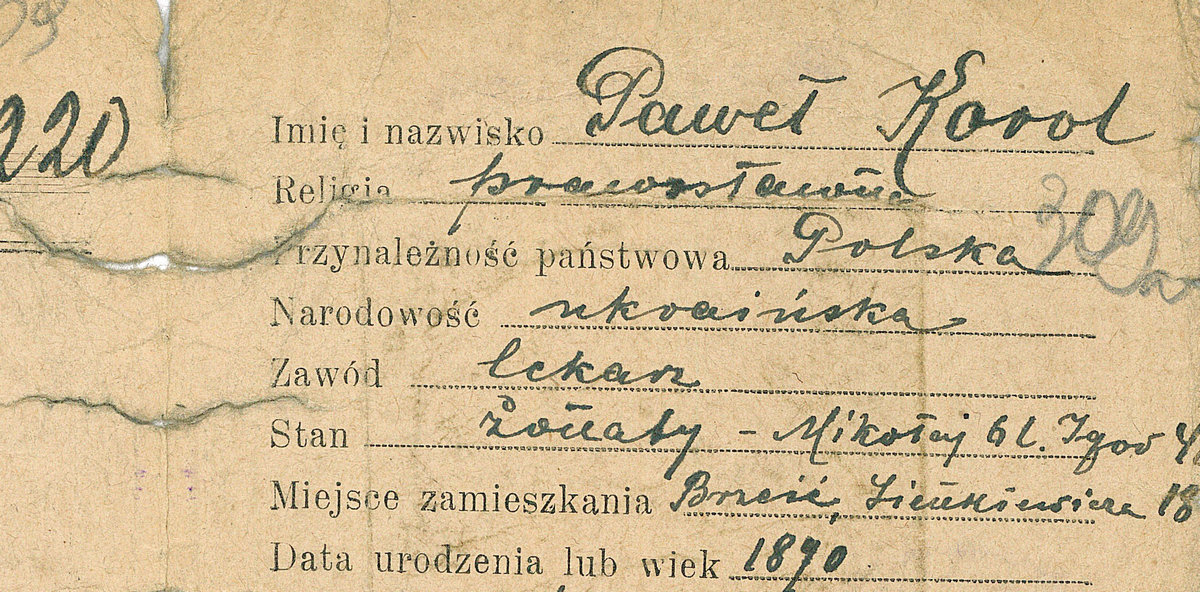 220
Imię i nazwisko Paweł Korol
Religia prawosławna
Przynależność państwowa Polska 309
Narodowość ukraińska
Zawód lekarz
Stan żonaty – Mikołaj 6 l. Igor 4
Miejsce zamieszkania Brześć, Sienkiewicza 18
Data urodzenia lub wiek 1890